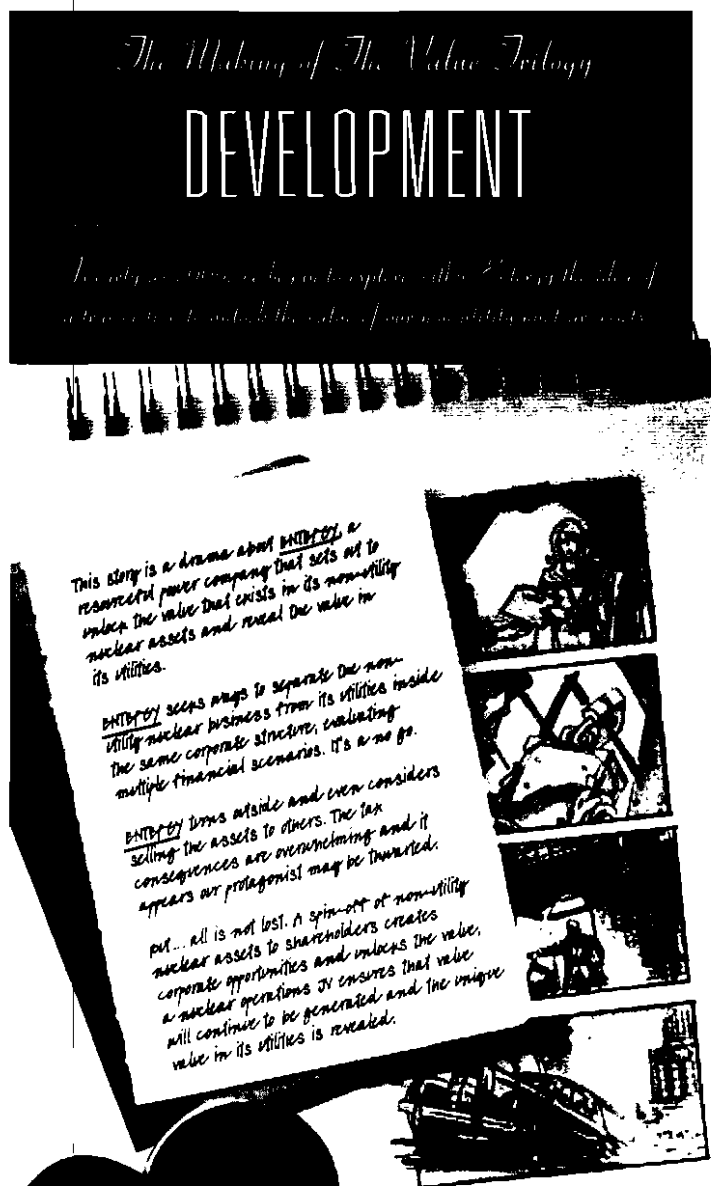 The Making of The Value Trilogy
DEVELOPMENT
the idea of
to unlock the value of our non-utility nuclear assets
This story is a drama about ENTERGY, a
resourceful power company that sets out to
unlock the value that exists in its non-utility
nuclear assets and reveal the value in
its utilities.
ENTERGY seeks ways to separate the non-
utility nuclear business from its utilities inside
the same corporate structure, evaluating
multiple financial scenarios. It's a no go.
ENTERGY turns outside and even considers
selling the assets to others. The tax
consequences are overwhelming and it
appears our protagonist may be thwarted.
But... all is not lost. A spin-off of non-utility
nuclear assets to shareholders creates
corporate opportunities and unlocks the value,
a nuclear operations JV ensures that value
will continue to be generated and the unique
value in its utilities is revealed.